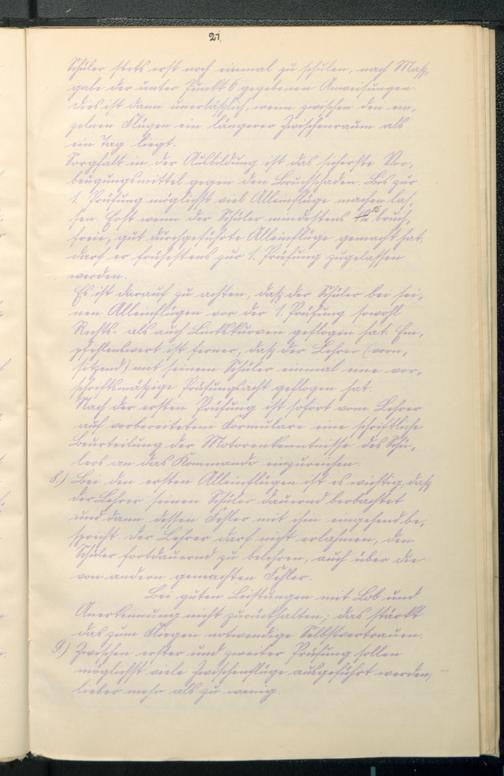 21.
Schüler stets erst noch einmal zu schulen, nach Maß-
gabe der unter Punkt 6 gegebenen Anweisungen
dies ist dann unerläßlich, wenn zwischen den ein-
zelnen Flügen ein längerer Zwischenraum als
ein Tag liegt.
Sorgfalt in der Ausbildung ist das sicherste Vor-
beugungsmittel gegen den Bruchschaden. Bis zur
1. Prüfung möglichst viel Alleinflüge machen las-
sen. Erst wenn der Schüler mindestens bruch-
freie, gut durchgeführte Alleinflüge gemacht hat,
darf er frühestens zur 1. Prüfung zugelassen
werden.
Es ist darauf zu achten, daß der Schüler bei sei-
nen Alleinflügen vor der 1. Prüfung sowohl
Rechts- als auch Linkskurven geflogen hat. Em-
pfehlenswert ist ferner, daß der Lehrer (vorn
sitzend) mit seinem Schüler einmal eine vor-
schriftsmäßige Prüfungsacht geflogen hat.
Nach der ersten Prüfung ist sofort vom Lehrer
auf vorbereitetem Formulare eine schriftliche
Beurteilung der Motorenkenntnisse des Schü-
lers an das Kommando einzureichen.
8.) Bei den ersten Alleinflügen ist es wichtig, daß
der Lehrer seinen Schüler dauernd beobachtet
und dann dessen Fehler mit ihm eingehend be-
spricht. Der Lehrer darf nicht erlahmen, den
Schüler fortdauernd zu belehren, auch über die
von andern gemachten Fehler.
Bei guten Leistungen mit Lob und
Anerkennung nicht zurückhalten; das stärkt
das zum Fliegen notwendige Selbstvertrauen.
9.) Zwischen erster und zweiter Prüfung sollen
möglichst viele Zwischenflüge ausgeführt werden,
lieber mehr als zu wenig.